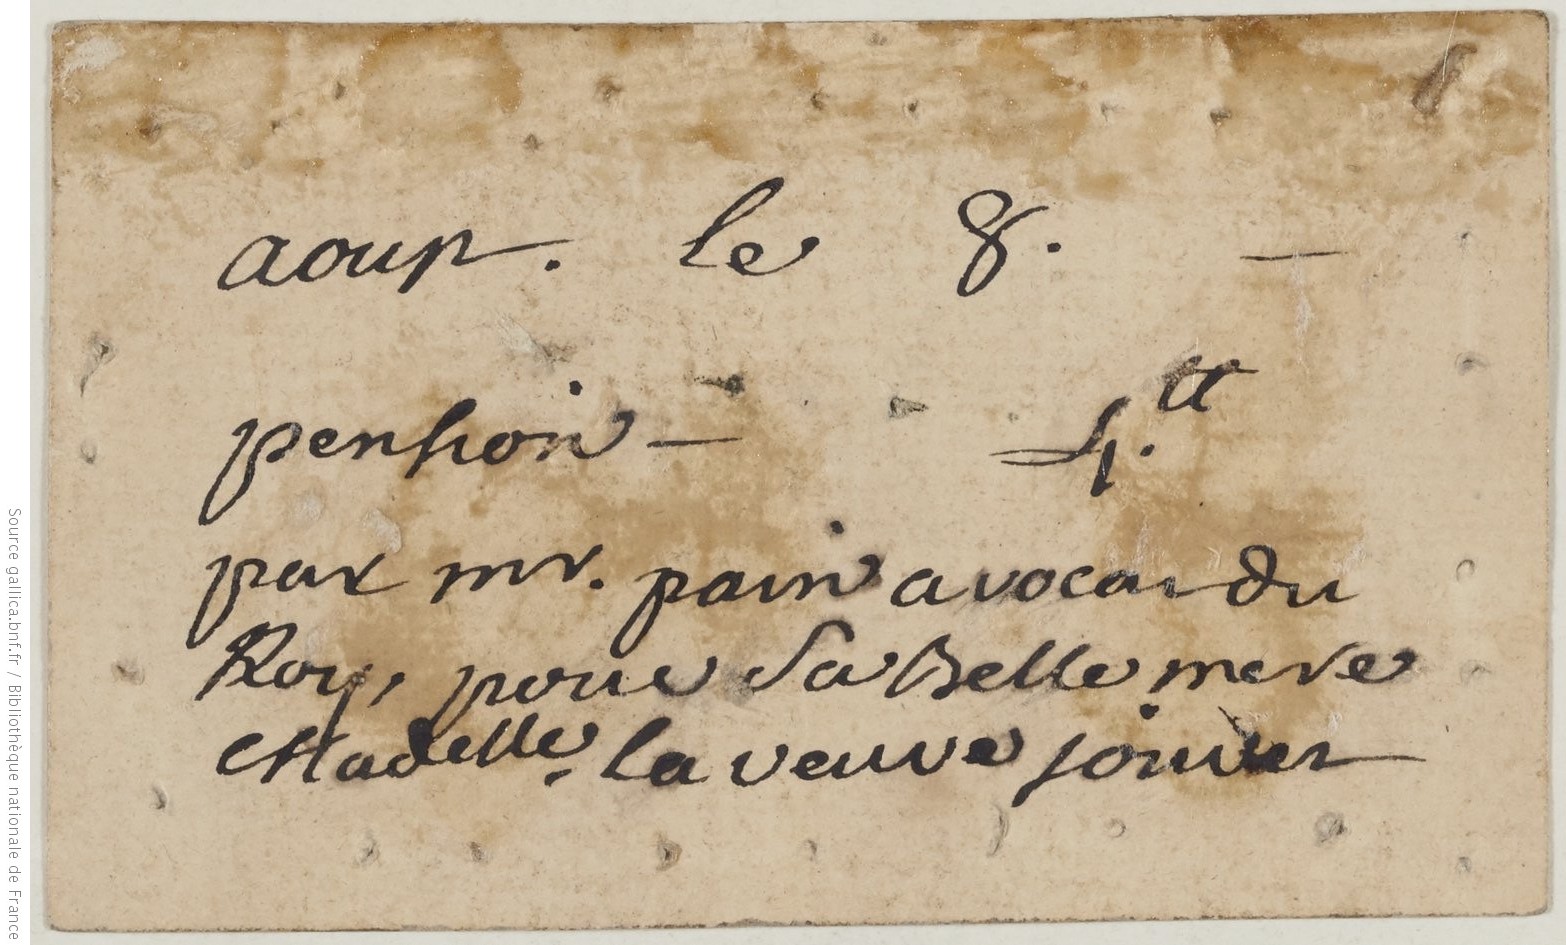 aoust. le 8. —
pension — 4.tt
par mr. pain avocat du
Roy, pour Sa Belle mere
Madelle. la veuve jouvet
Source gallica.bnf.fr / Bibliothèque nationale de France